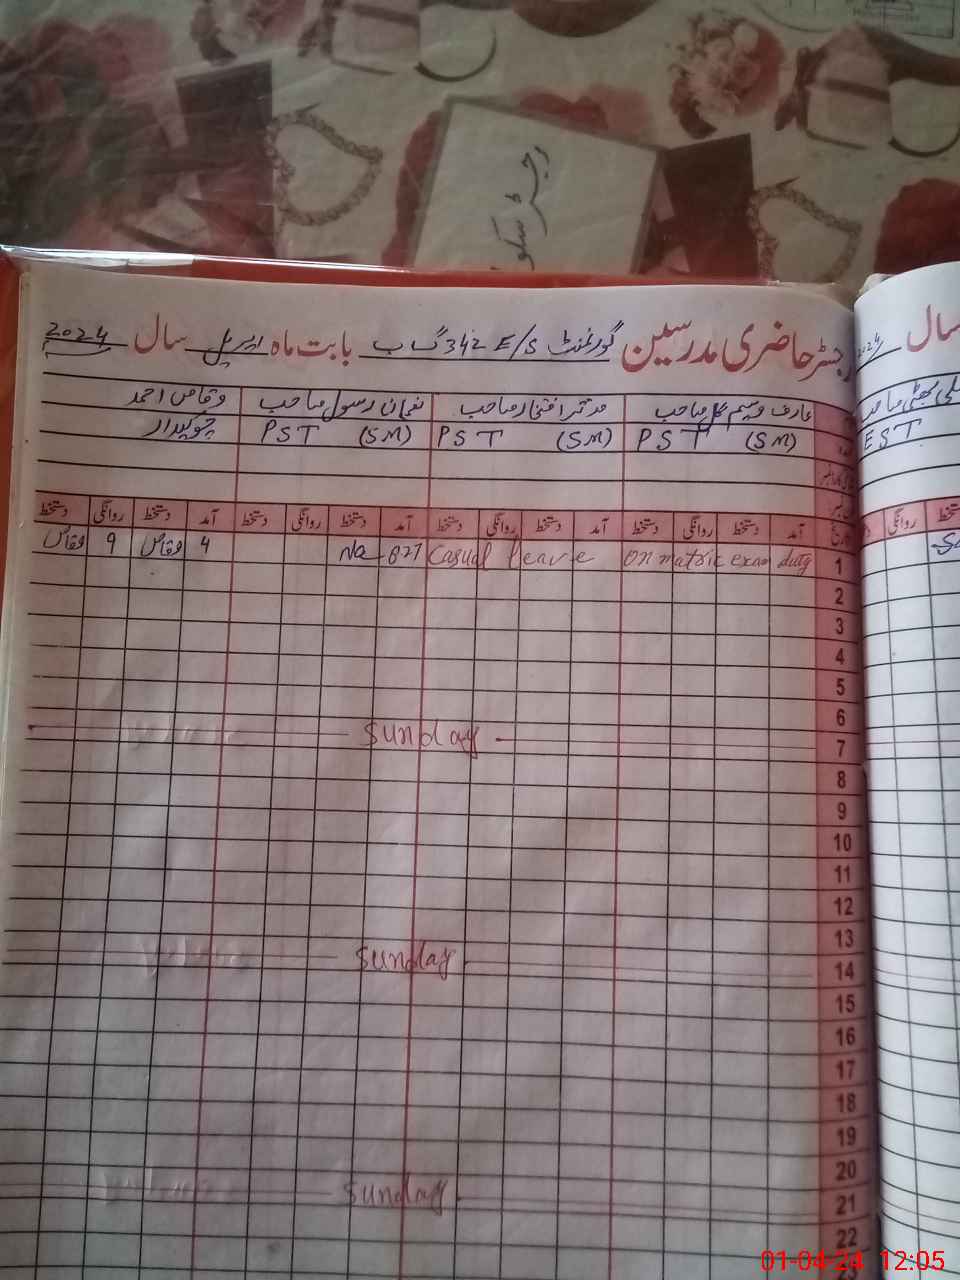 رجسٹر حاضری مدرسین گورنمنٹ E/S 342 گ ب بابت ماہ اپریل سال 2024
عارف وسیم گل صاحب مدثر افتخار صاحب نعمان رسول صاحب وقاص احمد
PST (SM) PST (SM) PST (SM) چوکیدار
تاریخ آمد دستخط روانگی دستخط آمد دستخط روانگی دستخط آمد دستخط روانگی دستخط آمد دستخط روانگی دستخط
1 On matric exam duty Casual leave 827 Na 4 وقاص 9 وقاص
2
3
4
5
6
7 Sunday
8
9
10
11
12
13
14 Sunday
15
16
17
18
19
20
21 Sunday
22
سال
2024
بھٹی صاحب
EST
روانگی دستخط
01-04-24 12:05